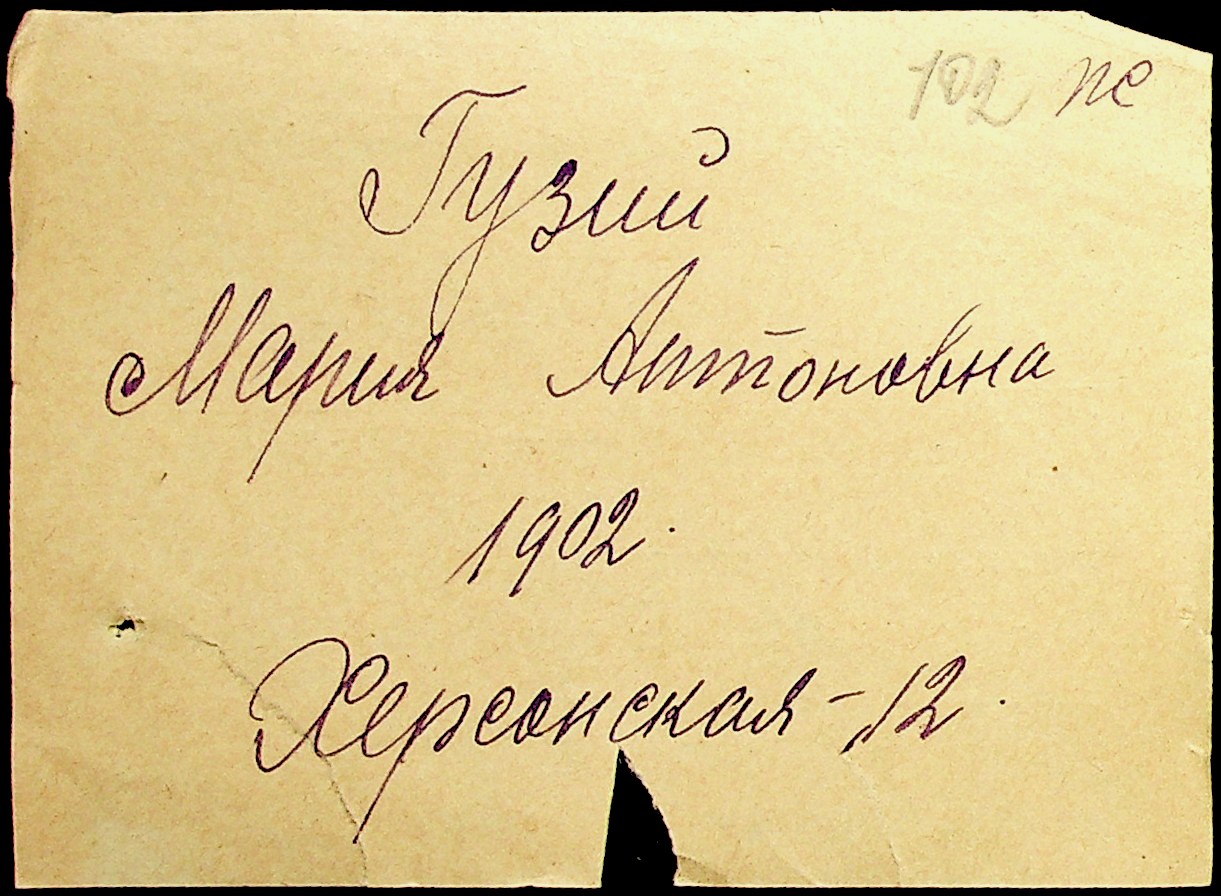 102 пс
Гузий
Мария Антоновна
1902.
Херсонская - 12.